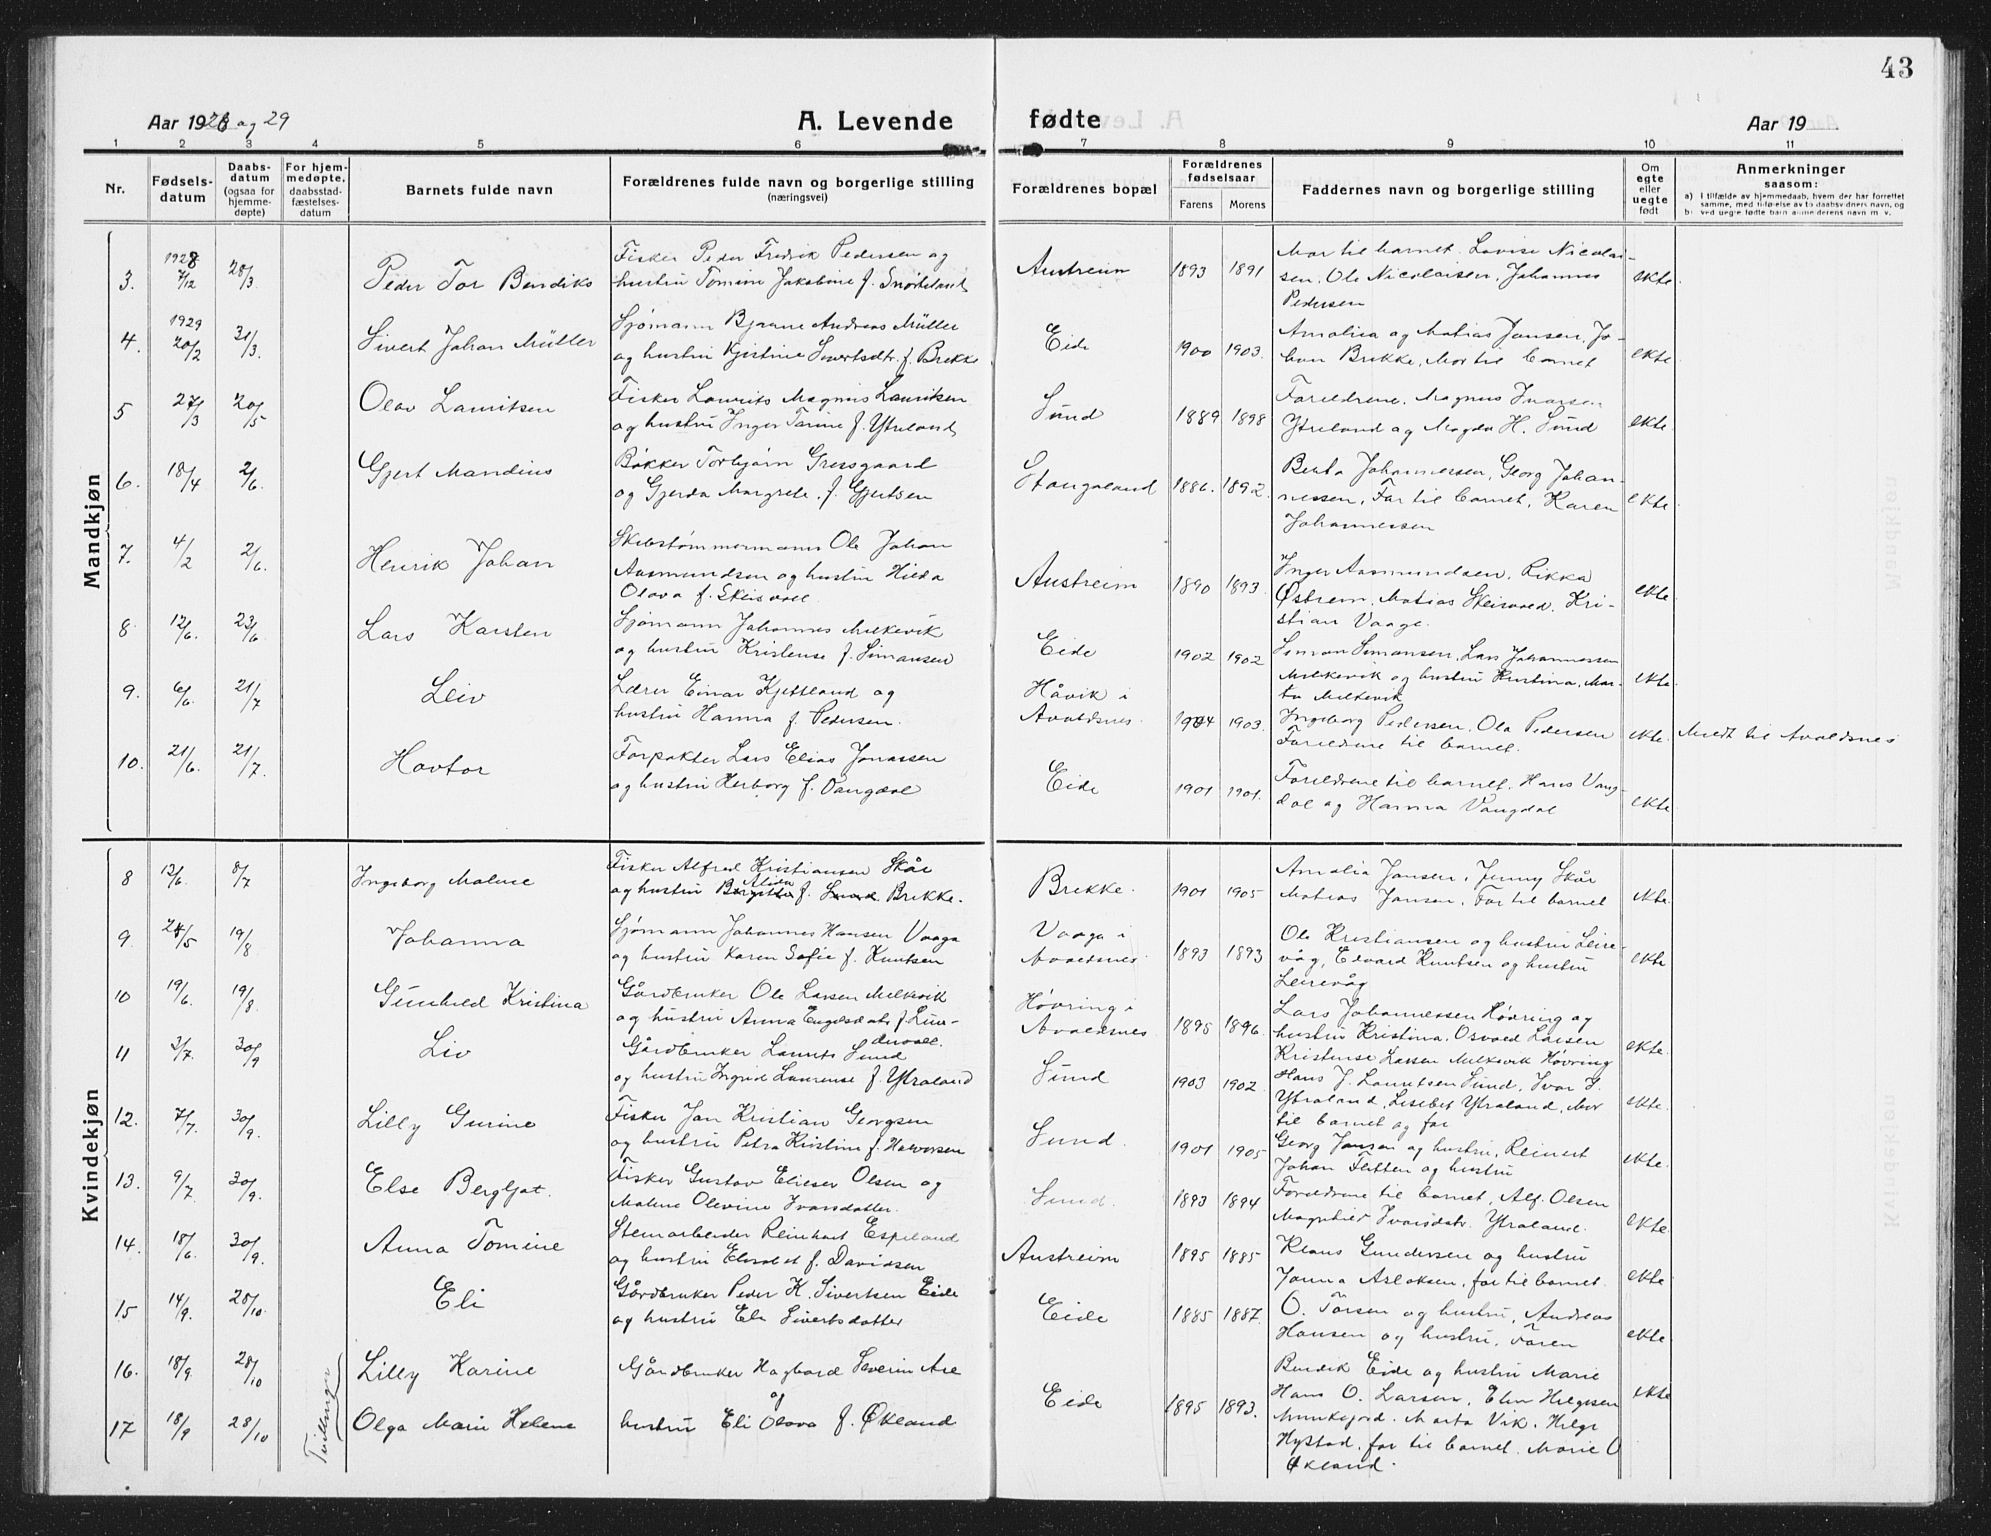 43
Aar 1928 og 29
A. Levende fødte
Aar 19
1 2 3 4 5 6 7 8 9 10 11
Nr.
Fødsels-
datum
Daabs-
datum
(ogsaa for
hjemme-
døpte)
For hjem-
medøpte,
daabsstad-
fæstelses-
datum
Barnets fulde navn
Forældrenes fulde navn og borgerlige stilling
(næringsvei)
Forældrenes bopæl
Forældrenes
fødselsaar
Farens Morens
Faddernes navn og borgerlige stilling
Om
egte
eller
uegte
født
Anmerkninger
saasom:
a) I tilfælde av hjemmedaab, hvem der har forrettet
samme, med tilføielse av to daabsvidners navn, og
b) ved uegte fødte barn anmelderens navn m. v.
Mandkjøn
3. 1928 7/12 28/3 Peder Tor Bendiks
Fisker Peder Fredrik Pedersen og
hustru Tomine Jakobine f. Snørteland
Austreim 1893 1891
Mor til barnet. Lovise Nicolai-
sen. Ole Nicolaisen, Johannes
Pedersen
ekte.
4. 1929 20/2 31/3. Sivert Johan Müller
Sjømann Bjarne Andreas Müller
og hustru Kjistine Sivertsdtr. f. Brekke
Eide 1900 1903.
Amalia og Matias Jansen, Jo-
han Brekke, Mor til barnet
ekte
5 27/3 20/5 Olav Lauritsen
Fisker Laurits Magnus Lauritsen
og hustru Inger Tarine f. Ytreland
Sund 1889 1898
Foreldrene, Magnus Ivarsen
Ytreland og Magda H. Sund
ekte.
6. 18/4 2/6. Gjert Mandius
Bøkker Torbjørn Gressgaard
og Gjerda Margrete f. Gjertsen
Stangaland 1886. 1892.
Berta Johannessen, Georg Johan-
nessen, Far til barnet, Karen
Johannessen
ekte.
7. 4/2 2/6. Henrik Johan
Skibstømmermann Ole Johan
Aasmundsen og hustru Hilda
Olava f. Skeisvoll
Austreim 1890 1893.
Inger Aasmundsen, Rikka
Østrem, Matias Skeisvold, Kri-
stian Vaage.
ekte.
8. 12/6. 23/6 Lars Karsten
Sjømann Johannes Melkevik
og hustru Kristense f. Simonsen
Eide 1902 1902
Simon Simonsen, Lars Johannessen
Melkevik og hustru Kristina, Mar-
ta Melkevik
ekte.
9. 6/6. 21/7 Leiv
Lærer Einar Kjetland og
hustru Hanna f. Pedersen.
Håvik i
Avaldsnes. 1904 1903.
Ingeborg Pedersen, Ola Pedersen
Foreldrene til barnet.
ekte.
Meldt til Avaldsnes
10. 21/6. 21/7. Hovtor
Forpakter Lars Elias Jonassen
og hustru Herborg f. Vangdal
Eide 1901 1901.
Foreldrene til barnet, Hans Vang-
dal og Hanna Vangdal
ekte.
Kvindekjøn
8 12/6. 8/7 Ingeborg Malene
Fisker Alfred Kristiansen Skår
og hustru Birgitte Alida f. Lund Brekke.
Brekke. 1901 1905
Amalia Jansen, Jenny Skår
Matias Jansen, Far til barnet
ekte.
9. 28/5 19/8 Johanna
Sjømann Johannes Hansen Vaaga
og hustru Karen Sofie f. Knutsen
Vaaga i
Avaldsnes. 1893 1893
Ole Kristiansen og hustru Leire-
våg, Edvard Knutsen og hustru
Leirevåg
ekte
10 19/6. 19/8 Gunhild Kristina
Gårdbruker Ole Larsen Melkevik
og hustru Anna Engelsdatr f. Lun-
dervoll.
Høvring i
Avaldsnes 1895 1896.
Lars Johannessen Høvring og
hustru Kristina, Osvald Larsen
Kristense Larsen Melkevik Høvring
ekte.
11 3/7. 30/9 Liv
Gårdbruker Laurits Sund
og hustru Ingrid Laurense f. Ytraland
Sund 1903 1902.
Hans J. Lauritsen Sund, Ivar I.
Ytraland, Lisebet Ytraland, Mor
til barnet og far
ekte.
12. 7/7. 30/9. Lilly Gurine
Fisker Jan Kristian Georgsen
og hustru Petra Kristine f. Halvorsen
Sund. 1901 1905
Georg Jansen og hustru, Reinert
Johan Fletten og hustru
ekte.
13. 9/7. 30/9. Else Bergljot.
Fisker Gustav Elieser Olsen og
Malene Olevine Ivarsdatter.
Sund. 1893 1894
Foreldrene til barnet, Alf. Olsen
Magnhild Ivarsdatr. Ytraland.
ekte.
14. 18/6. 30/9. Anna Tomine
Stenarbeider Reinhart Espeland
og hustru Elisabet f. Davidsen
Austreim 1895 1885
Klaus Gundersen og hustru
Janna Aslaksen, far til barnet.
ekte
15 14/9. 28/10. Eli
Gårdbruker Peder K. Sivertsen Eide
og hustru Eli Sivertsdatter
Eide 1885 1887.
O. Torsen og hustru, Andreas
Hansen og hustru, Faren
ekte
Tvillinger
16. 18/9. 28/10 Lilly Karine
17 18/9 28/10 Olga Marie Helene
Gårdbruker Hagbard Severin Ase
og
hustru Eli Olava f. Økland
Eide 1895 1893.
Bendik Eide og hustru Marie
Hans O. Larsen, Elen Helgesen
Munkejord. Marta Vik. Helge
Hystad, far til barnet. Marie O
Økland.
ekte